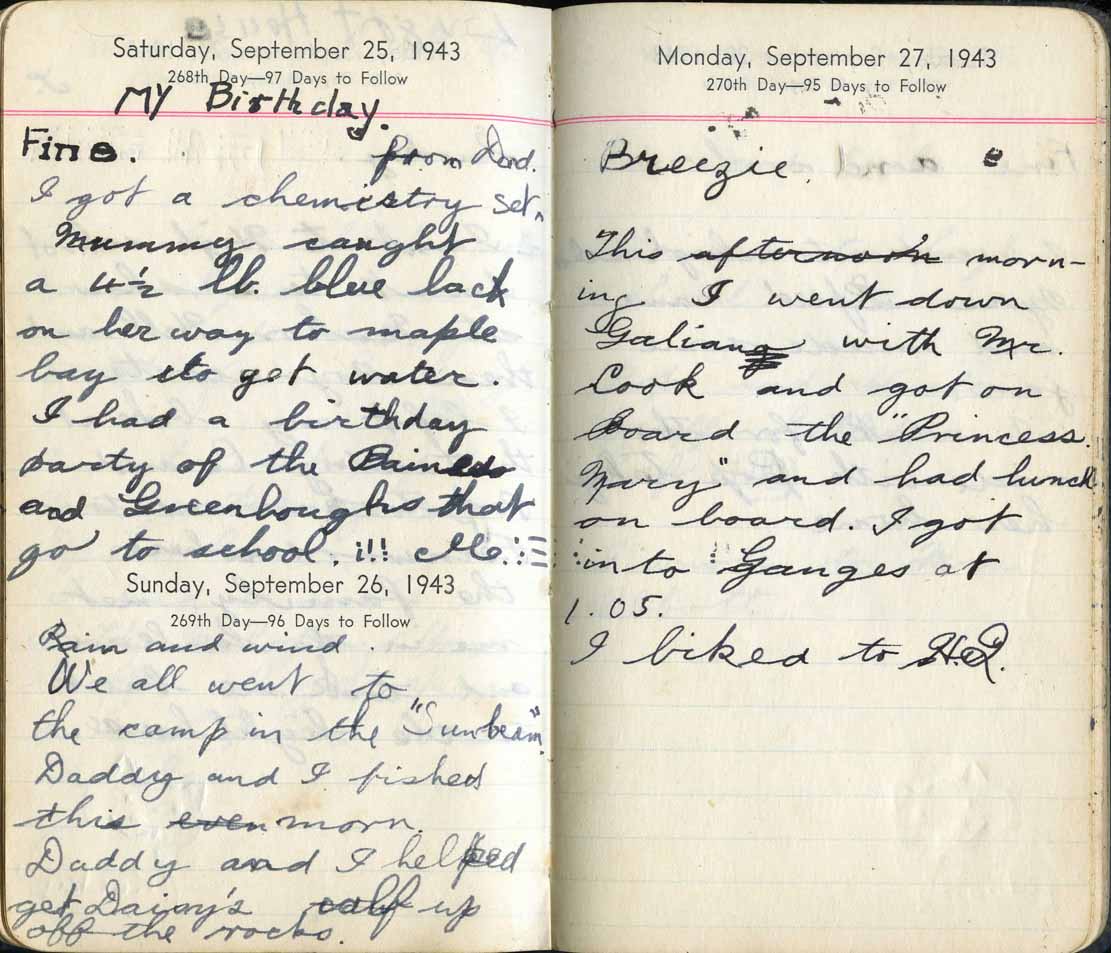 Saturday, September 25, 1943
268th Day—97 Days to Follow
My Birthday.
Fine.
from Dad.
I got a chemistry set,
Mummy caught
a 4½ lb. blue back
on her way to maple
bay to get water.
I had a birthday
party of the Baineds
and Greenhoughs that
go to school. i!! Me
Sunday, September 26, 1943
269th Day—96 Days to Follow
Rain and wind.
We all went to
the camp in the "Sunbeam"
Daddy and I fished
this even morn.
Daddy and I helped
get Daisy's calf up
off the rocks.
Monday, September 27, 1943
270th Day—95 Days to Follow
Breezie.
This afternoon morn-
ing I went down
Galiano with Mr.
Cook and got on
Board the "Princess
Mary" and had lunch
on board. I got
into Ganges at
1.05.
I biked to H.Q.